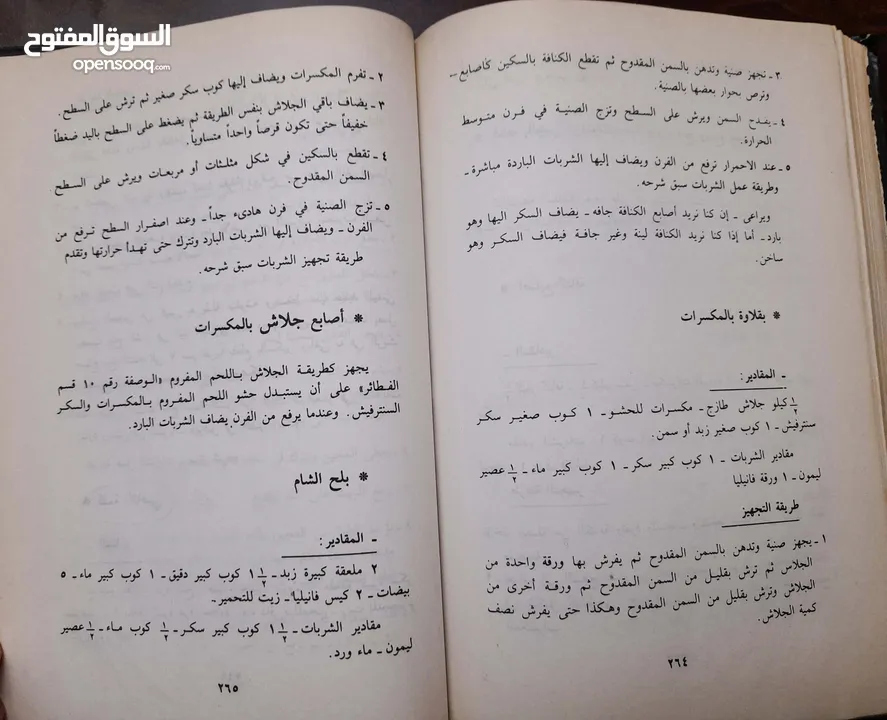 السوق المفتوح
opensooq.com
٣ ـ تجهز صنية وتدهن بالسمن المقدوح ثم تقطع الكنافة بالسكين كأصابع ـ
وترص بجوار بعضها بالصنية.
٤ ـ يقدح السمن ويرش على السطح وتزج الصنية في فرن متوسط
الحرارة.
٥ ـ عند الاحمرار ترفع من الفرن ويضاف إليها الشربات الباردة مباشرة ـ
وطريقة عمل الشربات سبق شرحه.
ويراعى ـ إن كنا نريد أصابع الكنافة جافه ـ يضاف السكر اليها وهو
بارد ـ أما إذا كنا نريد الكنافة لينة وغير جافة فيضاف السكر وهو
ساخن.
* بقلاوة بالمكسرات
ـ المقادير:
½ كيلو جلاش طازج ـ مكسرات للحشو ـ ١ كوب صغير سكر
سنترفيش ـ ١ كوب صغير زبد أو سمن.
مقادير الشربات ـ ١ كوب كبير سكر ـ ١ كوب كبير ماء ـ ½ عصير
ليمون ـ ١ ورقة فانيليا
طريقة التجهيز
١ ـ يجهز صنية وتدهن بالسمن المقدوح ثم يفرش بها ورقة واحدة من
الجلاس ثم ترش بقليل من السمن المقدوح ثم ورقة أخرى من
الجلاش وترش بقليل من السمن المقدوح وهكذا حتى يفرش نصف
كمية الجلاش.
٢٦٤
٢ ـ تفرم المكسرات ويضاف إليها كوب سكر صغير ثم ترش على السطح.
٣ ـ يضاف باقي الجلاش بنفس الطريقة ثم يضغط على السطح باليد ضغطاً
خفيفاً حتى تكون قرصاً واحداً متساوياً.
٤ ـ تقطع بالسكين في شكل مثلثات أو مربعات ويرش على السطح
السمن المقدوح.
٥ ـ تزج الصنية في فرن هادىء جداً ـ وعند اصفرار السطح ترفع من
الفرن ـ ويضاف إليها الشربات البارد وتترك حتى تهدأ حرارتها وتقدم
طريقة تجهيز الشربات سبق شرحه.
* أصابع جلاش بالمكسرات
يجهز كطريقة الجلاش باللحم المفروم «الوصفة رقم ١٠ قسم
الفطائر» على أن يستبدل حشو اللحم المفروم بالمكسرات والسكر
السنترفيش. وعندما يرفع من الفرن يضاف الشربات البارد.
* بلح الشام
ـ المقادير:
٢ ملعقة كبيرة زبد ـ ١½ كوب كبير دقيق ـ ١ كوب كبير ماء ـ ٥
بيضات ـ ٢ كيس فانيليا ـ زيت للتحمير ـ
مقادير الشربات ـ ١½ كوب كبير سكر ـ ½ كوب ماء ـ ½ عصير
ليمون ـ ماء ورد.
٢٦٥